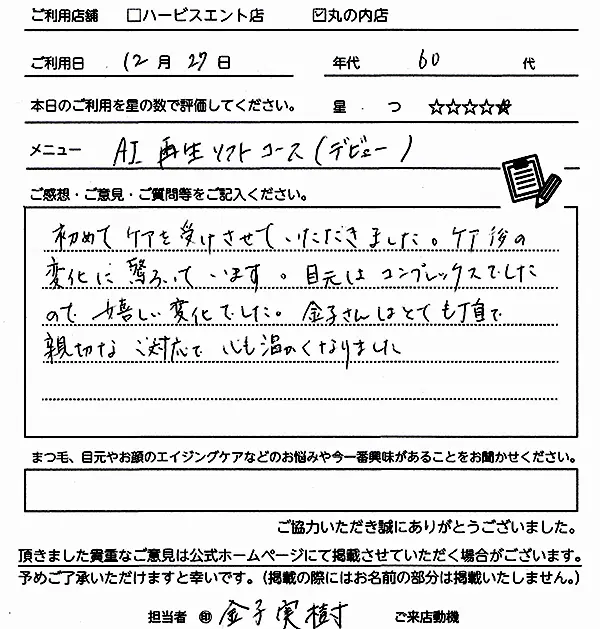 ご利用店舗 □ハービスエント店 ☑丸の内店
ご利用日 12月27日 年代 60代
本日のご利用を星の数で評価してください。 星 . つ ☆☆☆☆★
メニュー AI 再生ソフトコース(デビュー)
ご感想・ご意見・ご質問等をご記入ください。
初めてケアを受けさせていただきました。ケア後の
変化に驚ろいています。目元はコンプレックスでした
ので嬉しい変化でした。金子さんはとても丁寧で
親切なご対応で心も温かくなりました
まつ毛、目元やお顔のエイジングケアなどのお悩みや今一番興味があることをお聞かせください。
ご協力いただき誠にありがとうございました。
頂きました貴重なご意見は公式ホームページにて掲載させていただく場合がございます。
予めご了承いただけますと幸いです。(掲載の際にはお名前の部分は掲載いたしません。)
担当者 ㊞ 金子実樹 ご来店動機